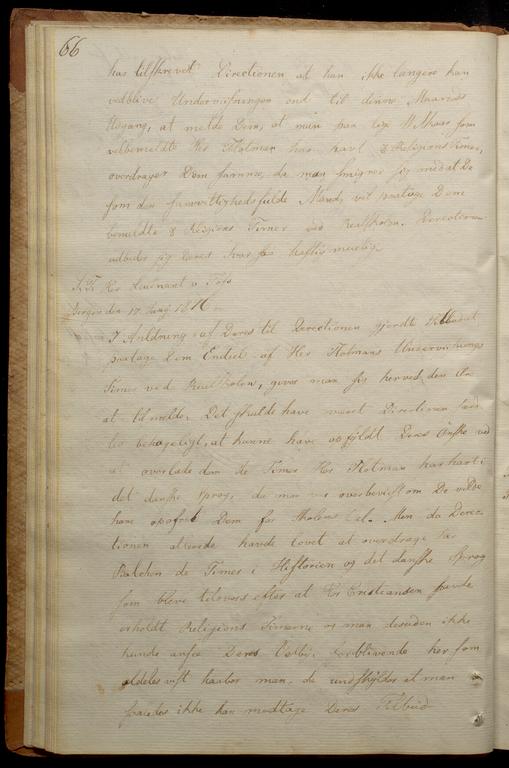 66
har tilskrevet Directionen at han ikke længere kan
vedblive Underviisningen end til denne Maaneds
Udgang, at melde Dem, at man paa lige Maade som
velbemeldte Hr Flotman har havt 8 Religions Timer,
overdrager Dem samme, da man smigrer sig med at De
som den samvittighedsfulde Mand, vil paatage Dem
bemeldte 8 Religions Timer ved Realskolen. Directionen
udbeder sig Deres Svar
S. T. Hr Lieutnant v
Bergen den 17 Junij 1816.
I Anledning af Deres til Directionen gjorde Tilbud at
paatage Dem Endeel af Hr Flotmans Underviisnings
Timer ved Realskolen, giver man sig herved den Ære
at tilmelde. Det skulde have været Directionen
behageligt, at kunne have opfyldt Deres Ønske ved
at overlade dem de Timer Hr Flotman har havt i
det danske Sprog, da man var overbeviist om De vilde
have opofret Dem for Skolens Vel. Men da Direc-
tionen allerede havde lovet at overdrage Hr
Balchen de Timer i Historien og det danske Sprog
som bleve tilovers efter at Hr Cristiansen havde
erholdt Religions Timerne og man desuden ikke
kunde ansee Deres forblivende her som
aldeles vist haaber man, de undskylder at man
ikke kan modtage Deres Tilbud